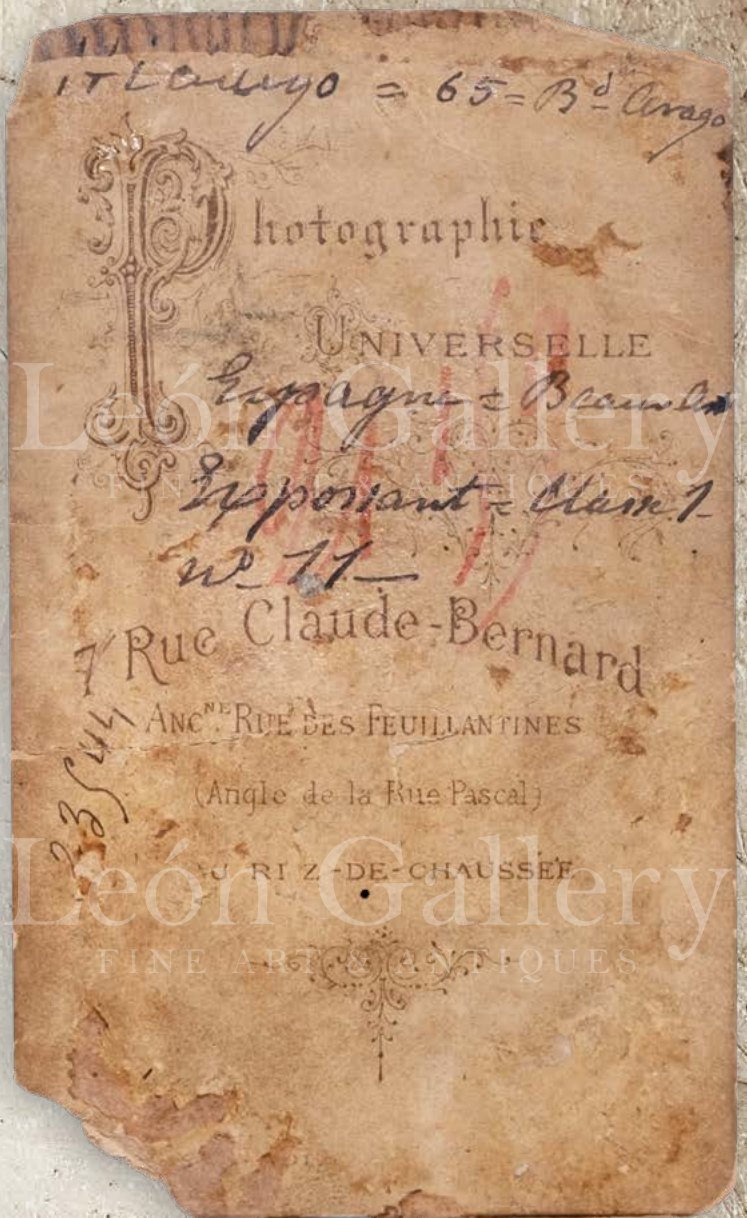 = 65 = Bd Arago
Photographie
UNIVERSELLE
Espagne = Beaux
Expposant = Classe 1
no 11
7 Rue Claude-Bernard
ANCNE RUE DES FEUILLANTINES
(Angle de la Rue Pascal)
AU REZ-DE-CHAUSSÉE
León Gallery
FINE ART & ANTIQUES
León Gallery
FINE ART & ANTIQUES